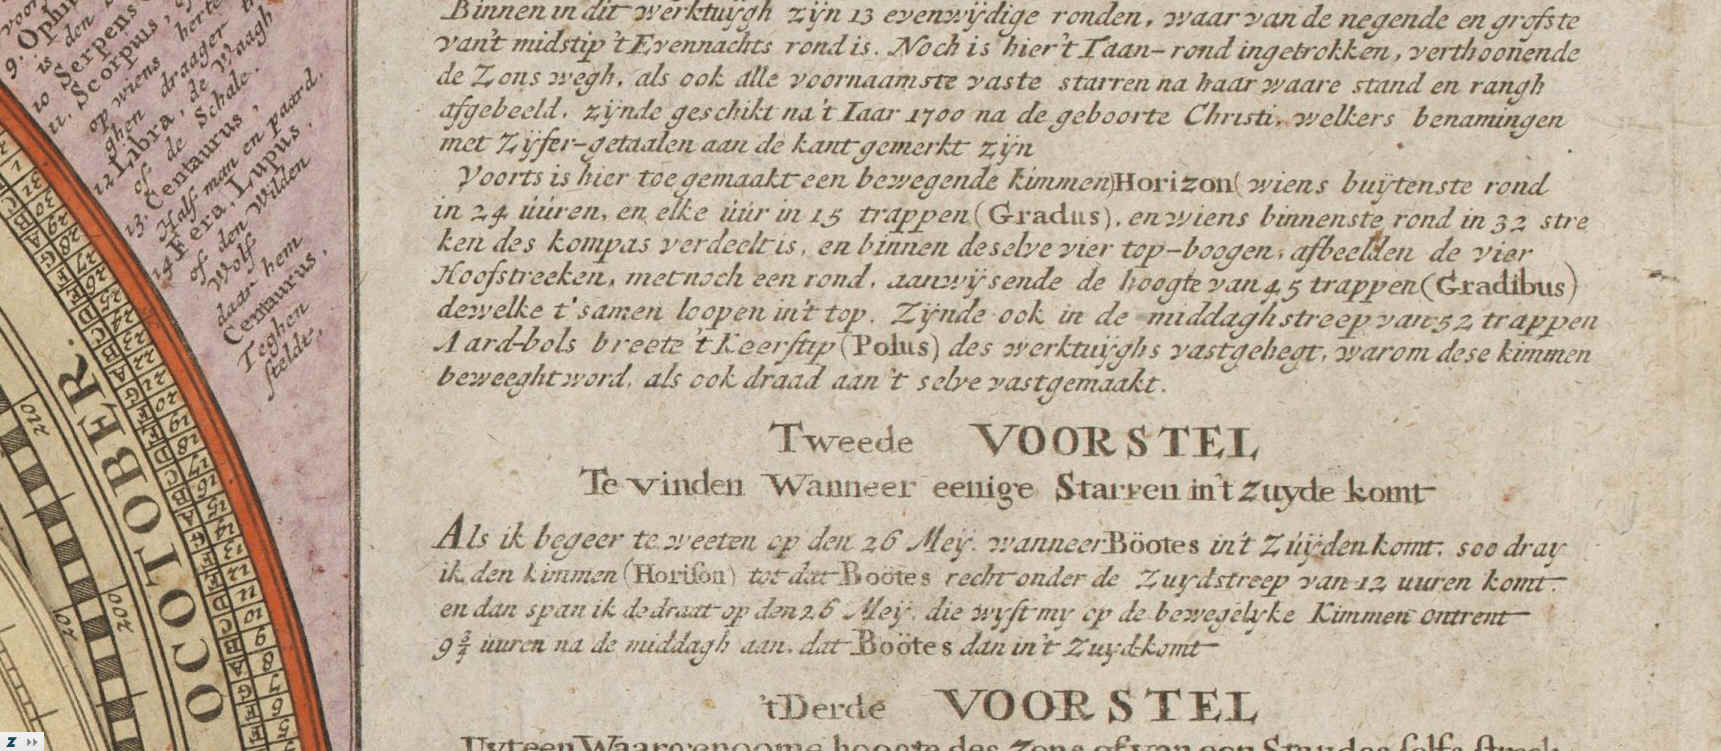 9. Ophi
is den
10 Serpens
11. Scorpius,
op wiens herte
ghen draager
12 Libra, de Waagh
of de Schale.
13. Centaurus,
Half man en paard.
14 Fera, Lupus,
of den wilden
Wolf
daar hem
Centaurus,
Teghen
stelde,
OCTOBER.
210
200
20
Binnen in dit werktuygh zyn 13 evenwydige ronden, waar van de negende en grofste
van't midstip 't Evennachts rond is. Noch is hier 't Taan-rond ingetrokken, verthoonende
de Zons wegh, als ook alle voornaamste vaste starren na haar waare stand en rangh
afgebeeld, zynde geschikt na 't Iaar 1700 na de geboorte Christi, welkers benamingen
met Zyfer-getaalen aan de kant gemerkt zyn
Voorts is hier toe gemaakt een bewegende kimmen)Horizon( wiens buytenste rond
in 24 úúren, en elke úúr in 15 trappen (Gradus), en wiens binnenste rond in 32 stre
ken des kompas verdeelt is, en binnen deselve vier top-boogen, afbeelden de vier
Hoofstreeken, met noch een rond, aanwysende de hoogte van 45 trappen (Gradibus)
dewelke t'samen loopen in't top. Zynde ook in de middaghstreep van 52 trappen
Aard-bols breete 't Keerstip (Polus) des werktuyghs vastgehegt, warom dese kimmen
beweeght word, als ook draad aan 't selve vastgemaakt.
Tweede VOORSTEL
Te vinden Wanneer eenige Starren in't Zuyde komt
Als ik begeer te weeten op den 26 Mey. wanneer Böotes in't Zúyden komt: soo dray
ik den kimmen (Horison) tot dat Bootes recht onder de Zuydstreep van 12 uuren komt:
en dan span ik de draat op den 26 Mey, die wyst my op de bewegelyke Kimmen ontrent
9 2/3 uuren na de middagh aan, dat Boötes dan in't Zuyd komt
'tDerde VOORSTEL
Uyt een Waargenoome hoogte des Zons of van een